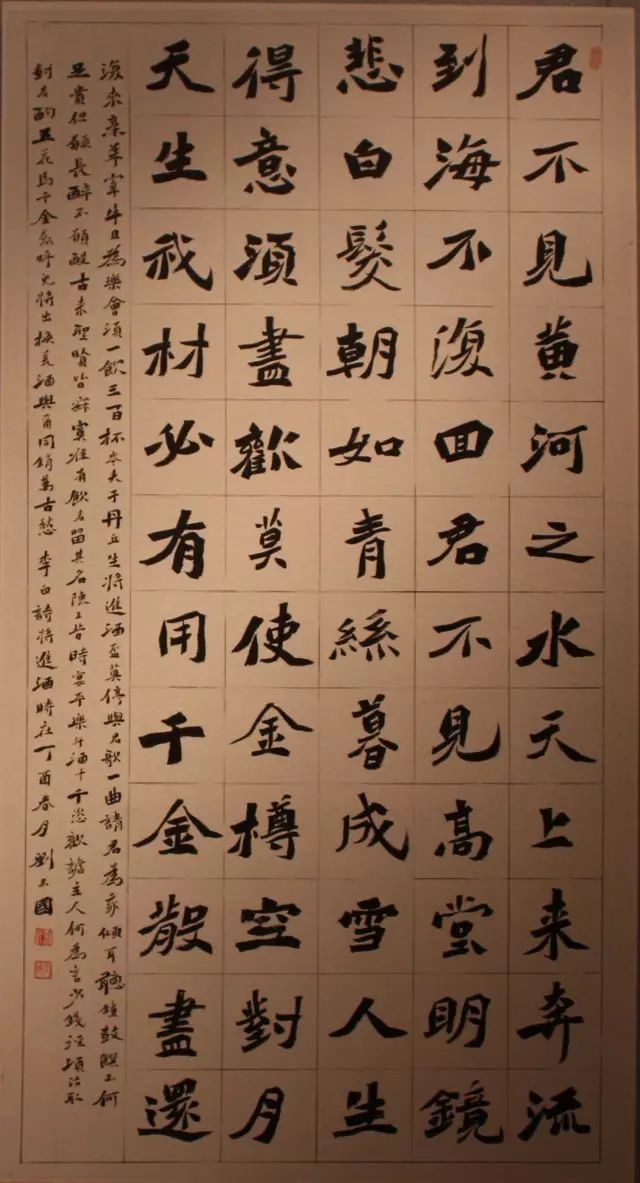 君不見黄河之水天上来奔流
到海不復回君不見高堂明鏡
悲白髮朝如青絲暮成雪人生
得意須盡歡莫使金樽空對月
天生我材必有用千金散盡還
復來烹羊宰牛且為樂會須一飲三百杯岑夫子丹丘生將進酒盃莫停與君歌一曲請君為我傾耳聽鐘鼓饌玉何
足貴但願長醉不願醒古來聖賢皆寂寞惟有飲者留其名陳王昔時宴平樂斗酒十千恣歡謔主人何為言少錢徑須沽取
對君酌五花馬千金裘呼兒將出換美酒與爾同銷萬古愁 李白詩將進酒時在丁酉春月劉玉國